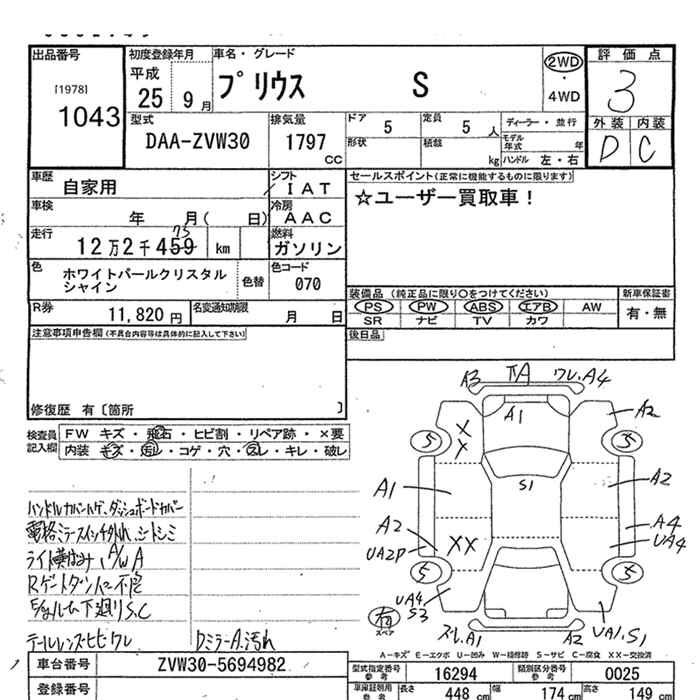 出品番号
[1978]
1043
初度登録年月
平成
25 9 月
車名・グレード
プリウス S
2WD
・
4WD
評価点
3
外装 内装
D C
型式
DAA-ZVW30
排気量
1797
CC
ドア
5
定員
5 人
ディーラー・並行
形状
積載
kg
モデル年式 年
ハンドル 左・右
車歴
自家用
シフト
IAT
車検
年 月( 日)
冷房
AAC
走行
75
12万2千459 km
燃料
ガソリン
色
ホワイトパールクリスタル
シャイン
色替
色コード
070
R券
11,820 円
名変通知期限
月 日
セールスポイント(正常に機能するものに限ります)
☆ユーザー買取車!
装備品 (純正品に限り〇をつけてください)
新車保証書
PS PW ABS エアB AW
有・無
SR ナビ TV カワ
後日品
注意事項申告欄(不具合内容等は具体的に記入して下さい)
修復歴 有〔箇所 〕
検査員
記入欄
FW キズ・飛石・ヒビ割・リペア跡・×要
内装 キズ・汚レ・コゲ・穴・スレ・キレ・破レ
ハンドルカバーハゲ、ダッシュボードカバー
電格ミラースイッチ外れ、シートシミ
A/W A
Rゲートダンパー不良
E/gルーム下廻りS.C
テールレンズヒビワレ
Dミラー A.汚れ
A3
ワレ.A4
A1
A2
X
X
5
5
S1
A1
A2
A2
XX
UA2P
A4
UA4
5
5
UA4
S3
有
スペア
スレ.A1
A2
UA1.S1
A-キズ E-エクボ U-凹み W-補修跡 S-サビ C-腐食 XX-交換済
車台番号
ZVW30-5694982
登録番号
型式指定番号
参考
16294
類別区分番号
参考
0025
車庫証明用
参考
長さ
448 cm
幅
174 cm
高さ
149 cm